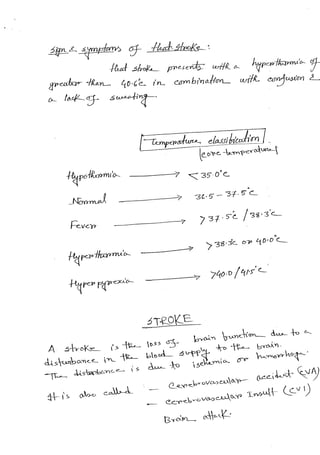 sign & symptoms of heat stroke :
heat stroke presents with a hyperthermia of
greater than 40.6°c in combination with confusion &
a lack of sweating
Temperature classification
|core temperature|
Hypothermia → < 35.0°c
Normal → 36.5 - 37.5°c
Fever → > 37.5°c / 38.3°c
Hyperthermia → > 38.3c or 40.0°c
Hyperpyrexia → >40.0 / 41.5°c
STROKE
A stroke is the loss of brain function due to a
disturbance in the blood supply to the brain.
The disturbance is due to ischemia or hemorrhage.
It is also called - Cerebrovascular accident (CVA)
- Cerebrovascular Insult (CVI)
Brain attack.